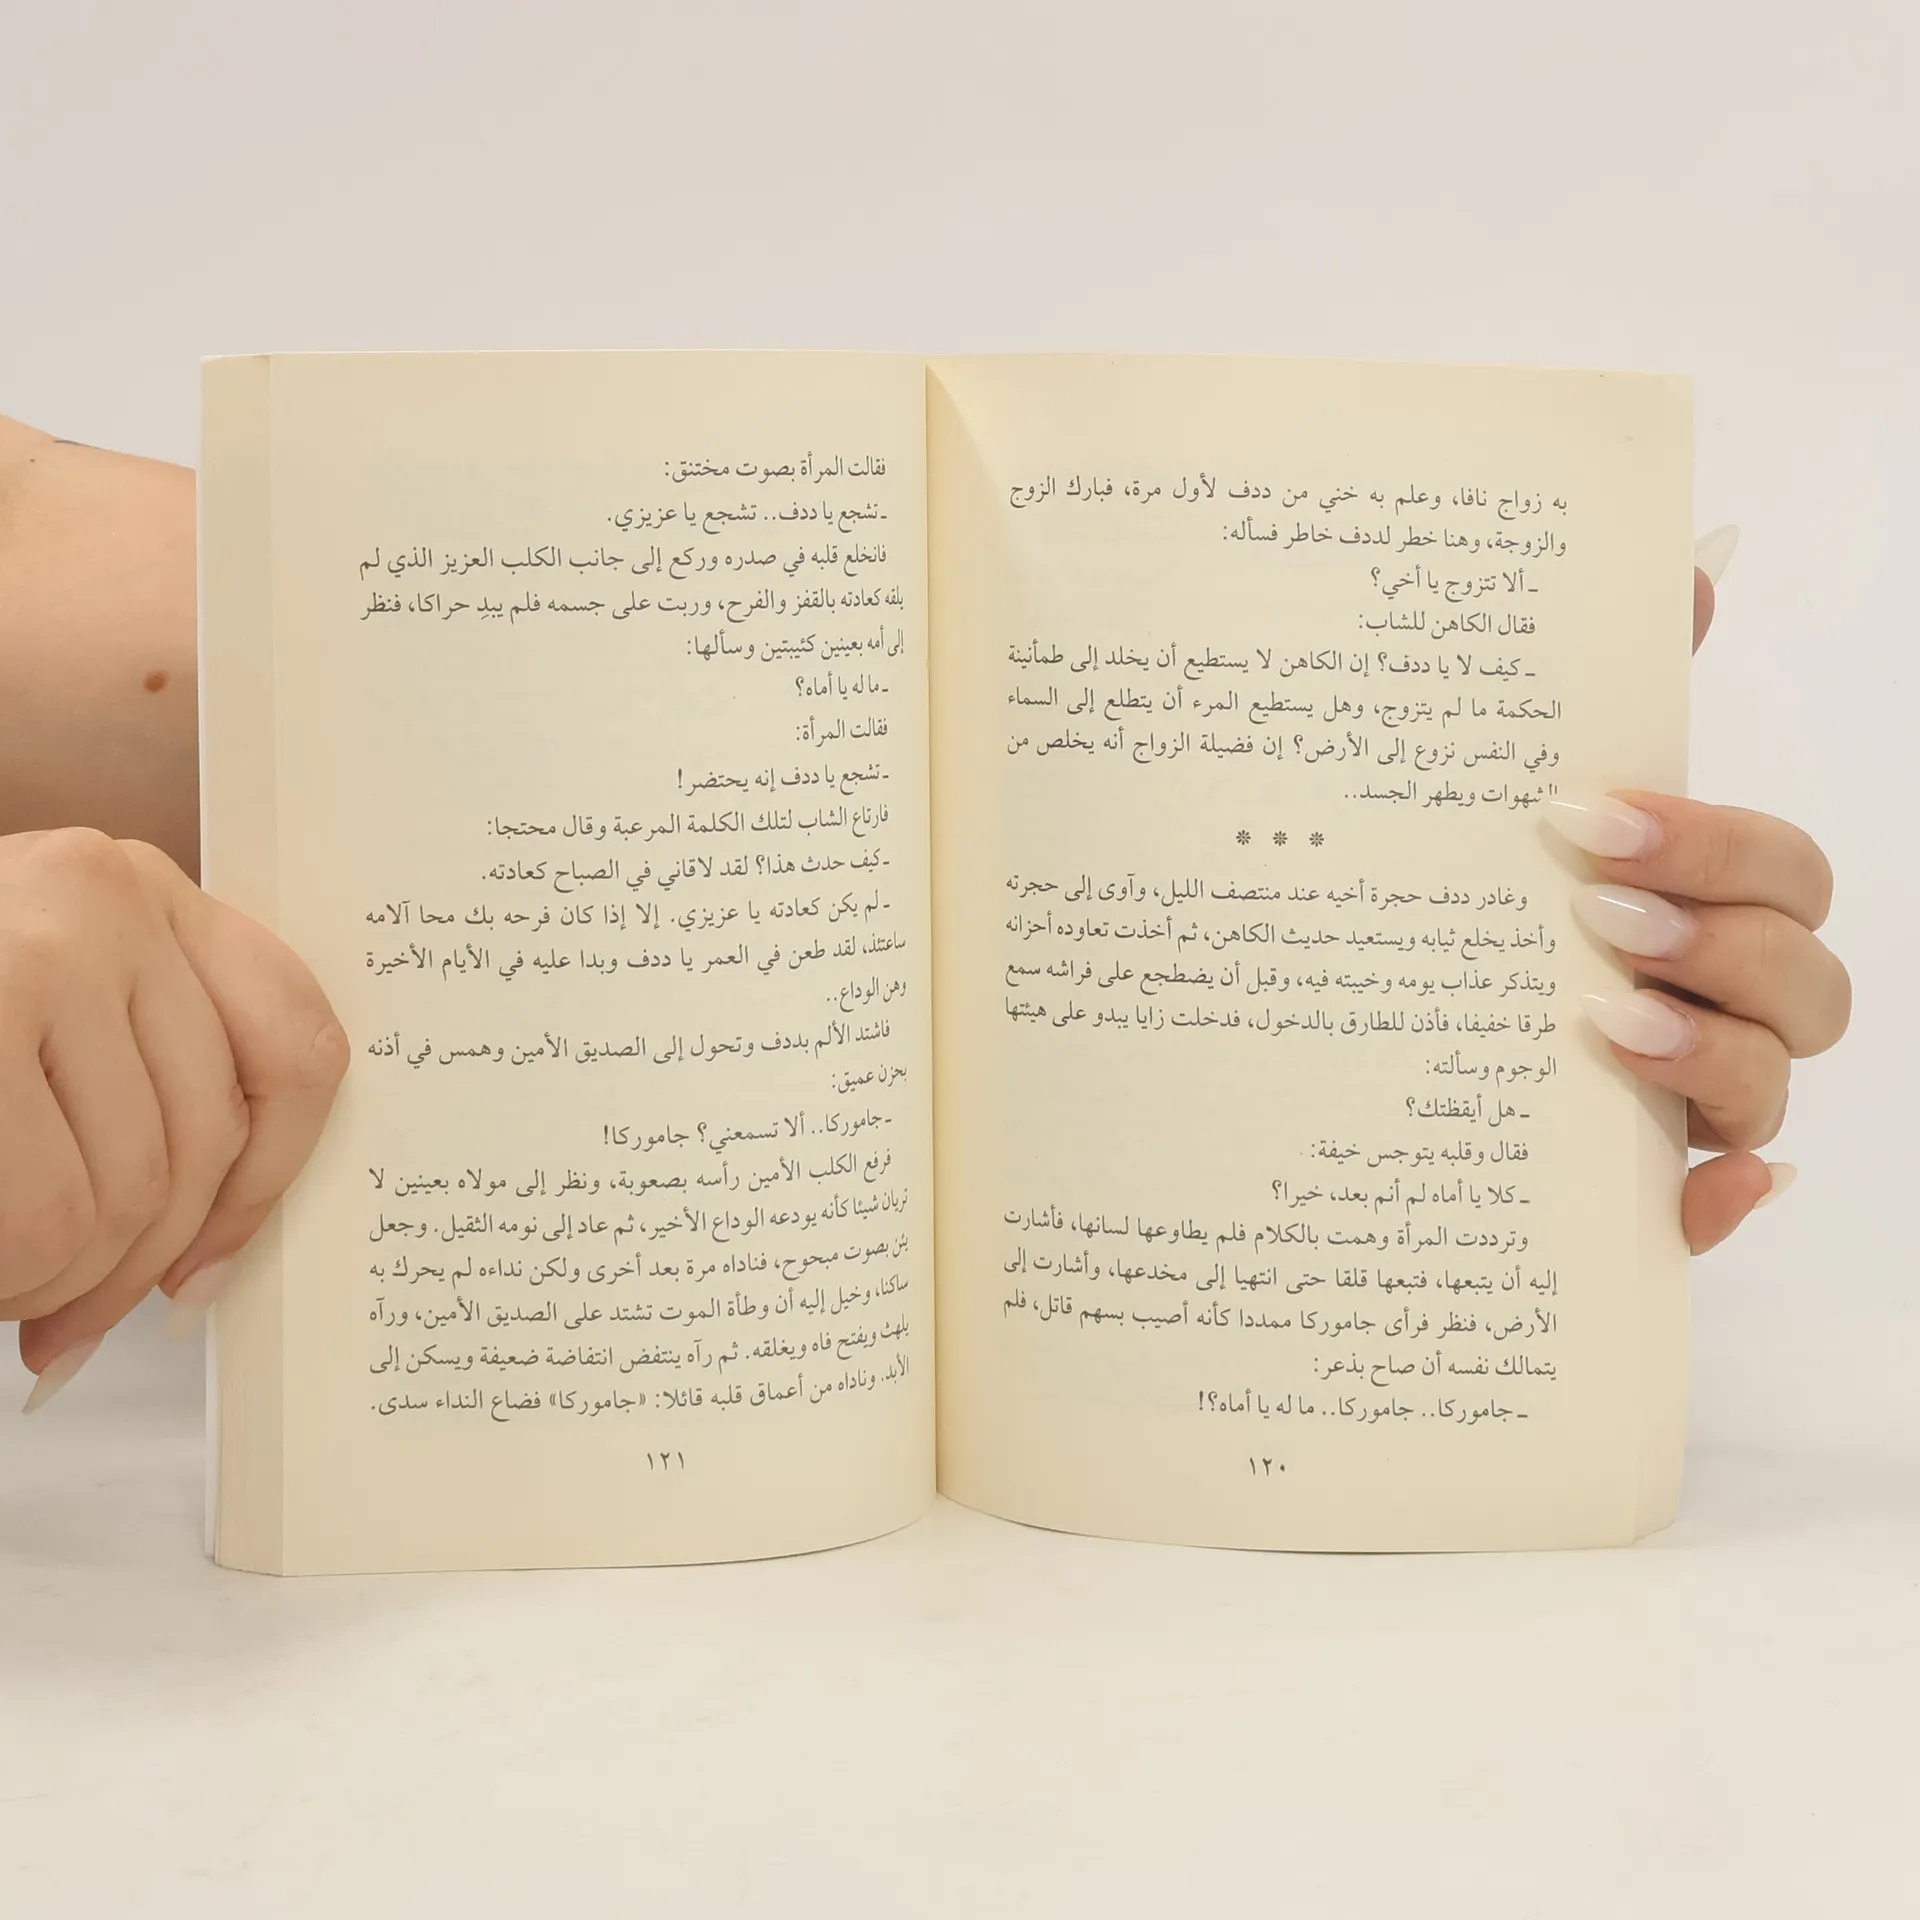 به زواج نافا، وعلم به خني من ددف لأول مرة، فبارك الزوج
والزوجة، وهنا خطر لددف خاطر فسأله:
ـ ألا تتزوج يا أخي؟
فقال الكاهن للشاب:
ـ كيف لا يا ددف؟ إن الكاهن لا يستطيع أن يخلد إلى طمأنينة
الحكمة ما لم يتزوج، وهل يستطيع المرء أن يتطلع إلى السماء
وفي النفس نزوع إلى الأرض؟ إن فضيلة الزواج أنه يخلص من
الشهوات ويطهر الجسد..
* * *
وغادر ددف حجرة أخيه عند منتصف الليل، وآوى إلى حجرته
وأخذ يخلع ثيابه ويستعيد حديث الكاهن، ثم أخذت تعاوده أحزانه
ويتذكر عذاب يومه وخيبته فيه، وقبل أن يضطجع على فراشه سمع
طرقا خفيفا، فأذن للطارق بالدخول، فدخلت زايا يبدو على هيئتها
الوجوم وسألته:
ـ هل أيقظتك؟
فقال وقلبه يتوجس خيفة:
ـ كلا يا أماه لم أنم بعد، خيرا؟
وترددت المرأة وهمت بالكلام فلم يطاوعها لسانها، فأشارت
إليه أن يتبعها، فتبعها قلقا حتى انتهيا إلى مخدعها، وأشارت إلى
الأرض، فنظر فرأى جاموركا ممددا كأنه أصيب بسهم قاتل، فلم
يتمالك نفسه أن صاح بذعر:
ـ جاموركا.. جاموركا.. ما له يا أماه؟!
١٢٠
فقالت المرأة بصوت مختنق:
ـ تشجع يا ددف.. تشجع يا عزيزي.
فانخلع قلبه في صدره وركع إلى جانب الكلب العزيز الذي لم
يلقه كعادته بالقفز والفرح، وربت على جسمه فلم يبدِ حراكا، فنظر
إلى أمه بعينين كئيبتين وسألها:
ـ ما له يا أماه؟
فقالت المرأة:
ـ تشجع يا ددف إنه يحتضر!
فارتاع الشاب لتلك الكلمة المرعبة وقال محتجا:
ـ كيف حدث هذا؟ لقد لاقاني في الصباح كعادته.
ـ لم يكن كعادته يا عزيزي. إلا إذا كان فرحه بك محا آلامه
ساعتئذ، لقد طعن في العمر يا ددف وبدا عليه في الأيام الأخيرة
وهن الوداع..
فاشتد الألم بددف وتحول إلى الصديق الأمين وهمس في أذنه
بحزن عميق:
ـ جاموركا.. ألا تسمعني؟ جاموركا!
فرفع الكلب الأمين رأسه بصعوبة، ونظر إلى مولاه بعينين لا
تريان شيئا كأنه يودعه الوداع الأخير، ثم عاد إلى نومه الثقيل. وجعل
يئن بصوت مبحوح، فناداه مرة بعد أخرى ولكن نداءه لم يحرك به
ساكنا، وخيل إليه أن وطأة الموت تشتد على الصديق الأمين، ورآه
يلهث ويفتح فاه ويغلقه. ثم رآه ينتفض انتفاضة ضعيفة ويسكن إلى
الأبد. وناداه من أعماق قلبه قائلا: «جاموركا» فضاع النداء سدى.
١٢١